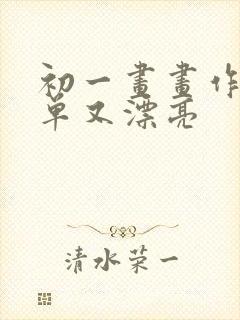 初一畫畫作
單又漂亮
清水荣一